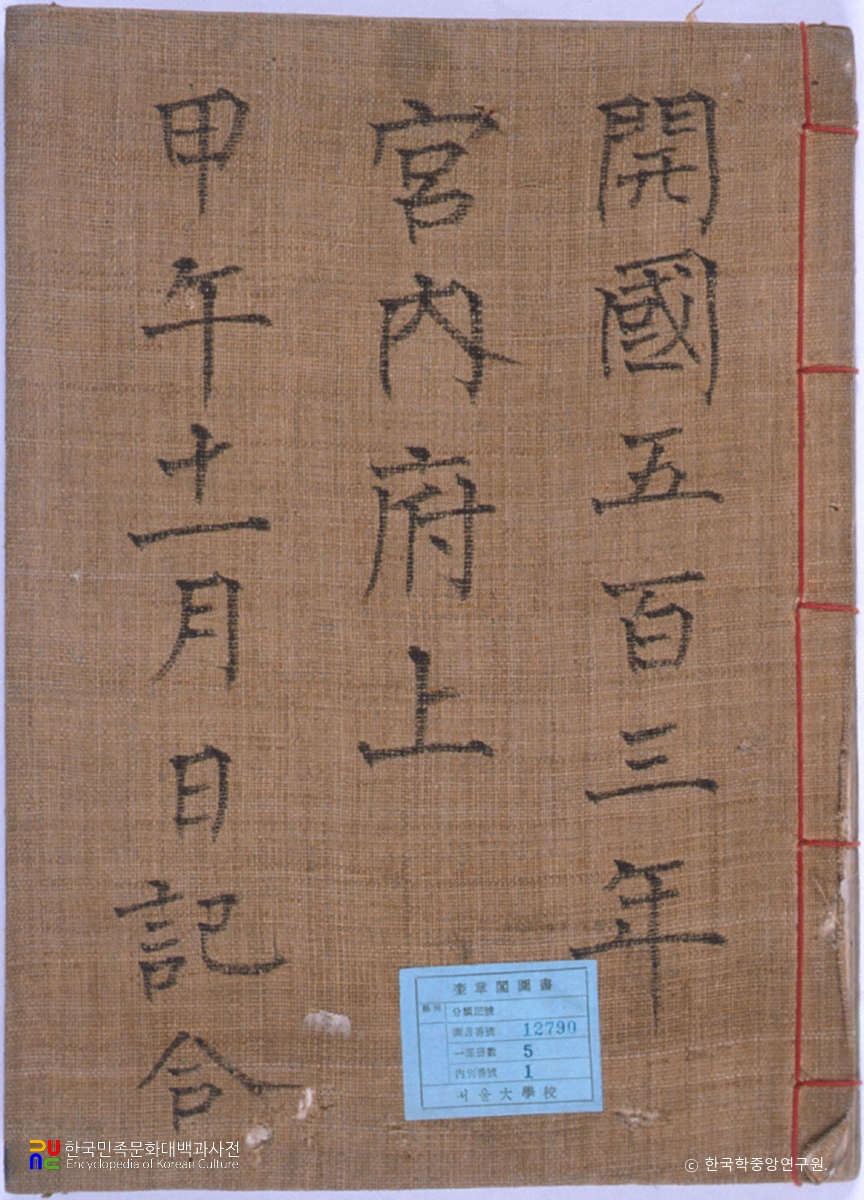 開國五百三年
宮內府上
甲午十一月日記令
奎章閣圖書
分類記號
圖書番號 12790
一部冊數 5
內別番號 1
서울大學校
한국민족문화대백과사전
Encyclopedia of Korean Culture
ⓒ 한국학중앙연구원.